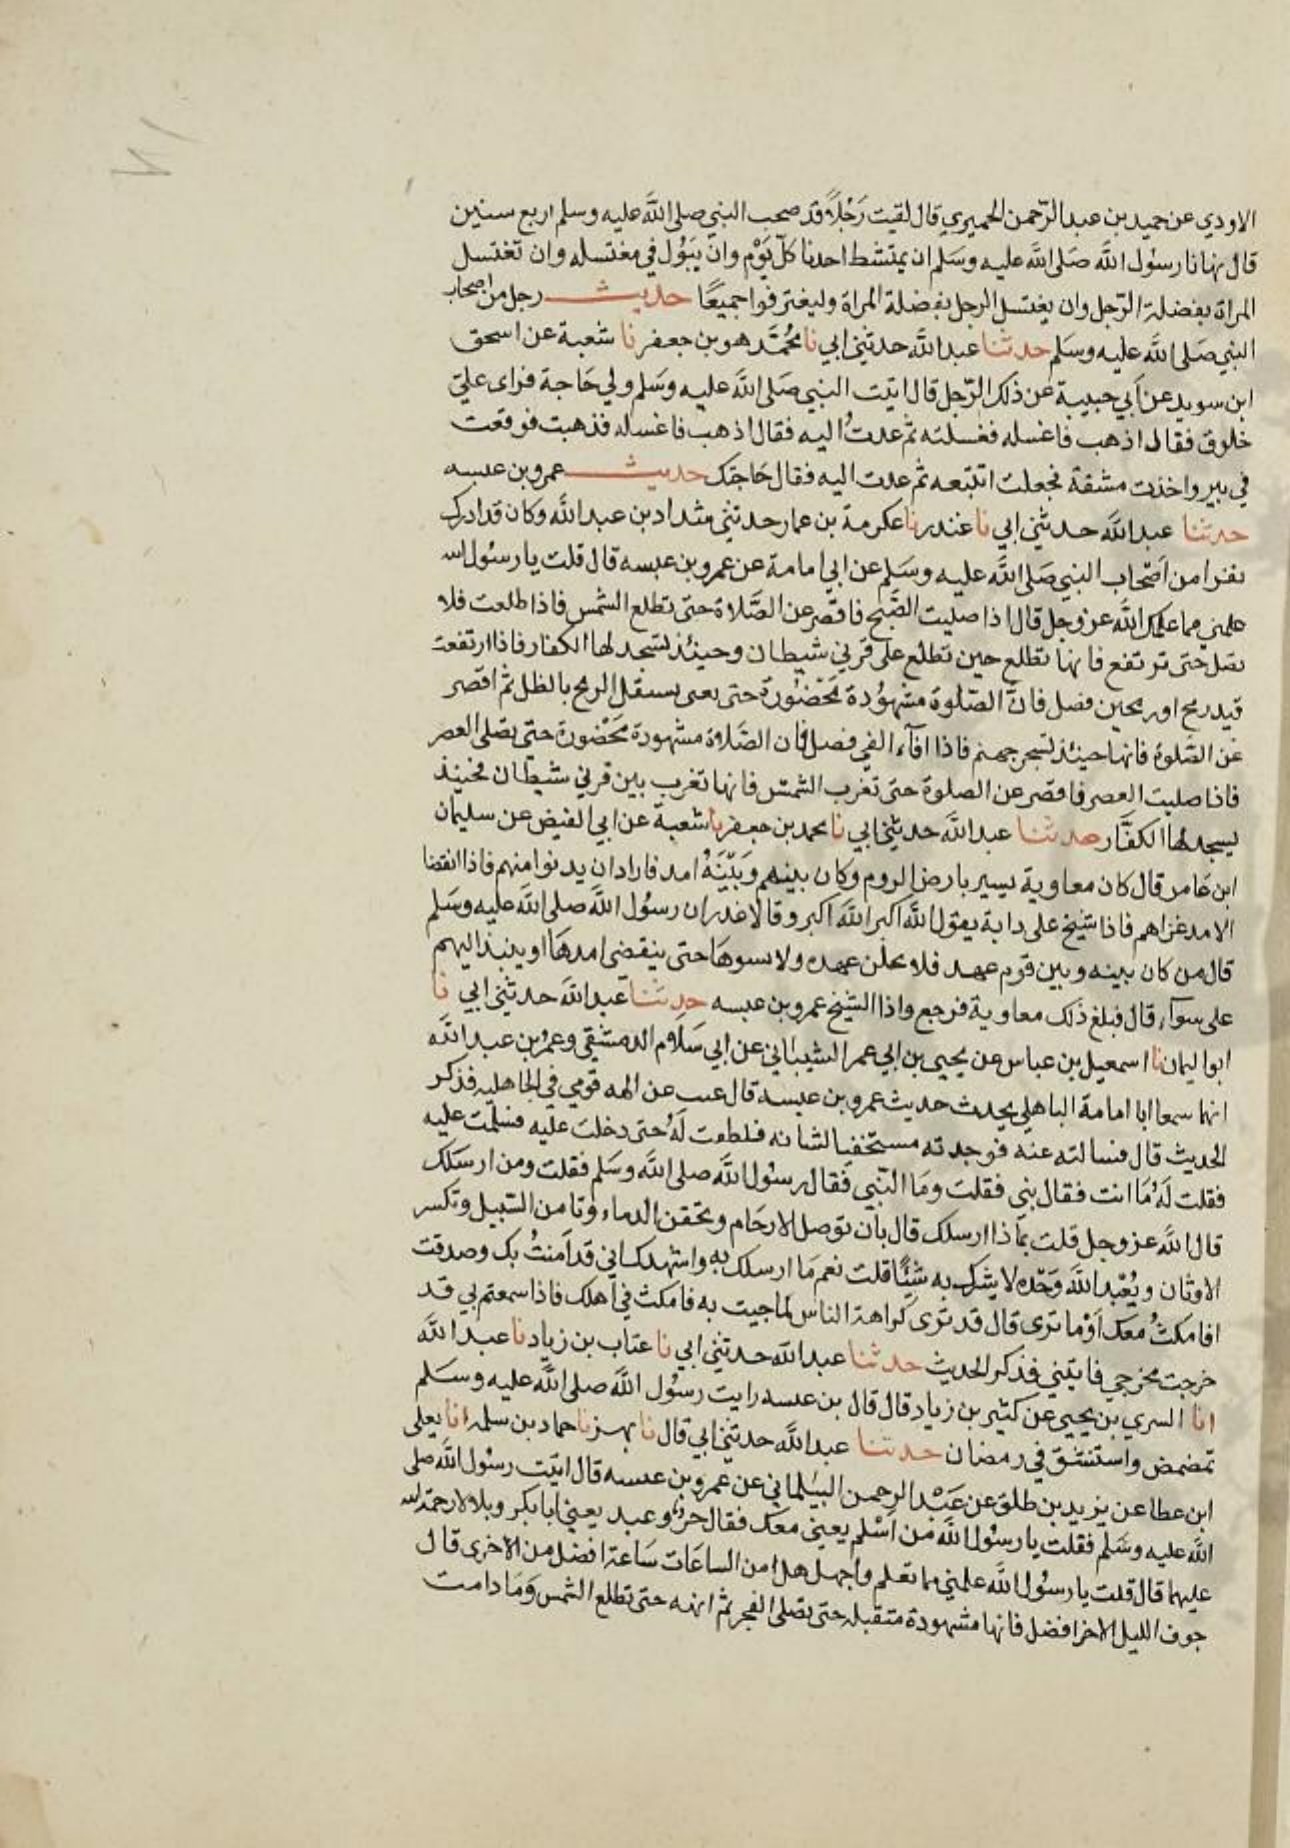 الاودي عن حميد بن عبد الرّحمن الحميري قال لقيت رَجُلاً قد صحب النبي صلى اللَّه عليه وسلم اربع سنين
قال نهانا رسوُل اللَّه صَلى اللَّه عليه وسَلم ان يمتشط احدنا كلّ يَوْم وان يَبُول في مغتسله وان تغتسل
المراة بفضلة الرّجل وان يغتسل الرجل بفضلة المراة وليغترفوا جميعًا حديث رجل من اصحاب
النبي صَلى اللَّه عليه وسَلم حدثنا عبد اللَّه حدثني ابي نا محُمَّد هو بن جعفر نا شعبة عن اسحق
ابن سويد عن أبي حبيبة عن ذلك الرّجل قال اتيت النبي صَلى اللَّه عليه وسَلم ولي حَاجة فراى عليّ
خلوق فقال اذهب فاغسله فغسلته ثم عدتُ اليه فقال اذهب فاغسله فذهبت فوقعت
في بير واخذت مشقة فجعلت اتتبّعه ثم عدت اليه فقال حَاجتك حديث عمرو بن عبسه
حدثنا عبد اللَّه حدثني ابي نا غندر نا عكرمة بن عمار حدثني شداد بن عبد اللَّه وكان قد ادرك
نفرا من اَصْحَاب النبي صَلى اللَّه عليه وسَلم عن ابي امامة عن عمرو بن عبسه قال قلت يا رسوُل الله
علمني مما علمك اللَّه عز وجل قال اذا صليت الصّبح فاقصر عن الصَّلاة حتى تطلع الشمس فاذا طلعت فلا
تصل حتى ترتفع فانها تطلع حين تطلع على قرني شيطان وحينئذ يسَجد لها الكفار فاذا ارتفعت
قيد رمح او رمحين فصل فانّ الصّلوة مشهوُدة مَحْضُورة حتى يعنى يستقل الرمح بالظل ثم اقصر
عَن الصَّلوة فانها حينئذ تسجر جهنم فاذا افآء الفي فصل فان الصَّلاة مشهودة مَحْضورة حتى تصلى العصر
فاذا صليت العصر فاقصر عن الصلوة حتى تغرب الشمس فانها تغرب بين قرني شيطان فحينئذ
يسجد لها الكفَّار حدثنا عبد اللَّه حدثني ابي نا محمد بن جعفر نا شعبة عن ابي الفيض عن سليمان
ابن عَامر قال كان معاوية يسير بارض الروم وكان بينهم وَبَيْنَهُ امد فاراد ان يدنوا منهم فاذا انقضا
الامد غزاهم فاذا شيخ على دابة يقول اللَّه اكبر اللَّه اكبر وفا لا غدر ان رسوُل اللَّه صلى اللَّه عليه وسَلم
قال من كان بينه وبين قوم عهد فلا يحلن عهده ولا يسوها حتى ينقضى امدهَا او ينبذ اليهم
على سوآء قال فبلغ ذلك معاوية فرجع واذا الشيخ عمرو بن عبسه حدثنا عبد اللَّه حدثني ابي نا
ابو اليمان نا اسمعيل بن عباس عن يحيى بن ابي عمر الشيباني عن ابي سَلام الدمشقي وعمرُ بن عبد اللَّه
انهما سمعا ابا امامة الباهلي يحدث حديث عمرو بن عبسه قال رغبت عن الهه قومي في الجاهليه فذكر
الحديث قال فسالته عنه فوجدته مستخفيا لشانه فلطفت لَهُ حتى دخلت عليه فسَلمت عليه
فقلت لَهُ مَا انت فقال نبي فقلت ومَا النّبي فقال رسوُل اللَّه صلى اللَّه وسَلم فقلت ومن ارسَلك
قال اللَّه عز وجل قلت بمَا ذا ارسلك قال بأن توصل الارحَام وتحقن الدماء وتامن السّبيل وتكسر
الاوثان ويُعْبد اللَّه وَحْده لا يشرك به شيئًا قلت نعم مَا ارسلك به واشهدك اني قد آمنتُ بك وصدقت
افامكثُ معك اَوْ ما ترى قال قد ترى كراهة الناس لما جيت به فامكث في اهلك فاذا سمعتم بي قد
خرجت مخرجي فايتيني فذكر الحديث حدثنا عبد اللَّه حدثني ابي نا عتاب بن زياد نا عبد اللَّه
انا السري بن يحيى عن كثير بن زياد قال قال بن عبسه رايت رسوُل اللَّه صلى اللَّه عليه وسَلم
تمضمض واستنشق في رمضان حدثنا عبد اللَّه حدثني ابي قال نا بهز نا حماد بن سلمه انا يعلى
ابن عطا عن يزيد بن طلق عن عَبْد الرحمن البيلماني عن عمرو بن عبسه قال اتيت رسوُل اللَّه صلى
اللَّه عليه وسَلم فقلت يا رسوُل اللَّه مَن اَسْلم يعني معك فقال حرٌ وعبد يعني ابا بكر وبلالا رحمة الله
عليهما قال قلت يا رسوُل اللَّه علمني مما تعلم واجهل هل من الساعَات سَاعة افضل من الاخرى قال
جوف الليل الاخر افضل فانها مشهودة متقبله حتى تصلى الفجر ثم انهه حتى تطلع الشمس وَمَا دامت